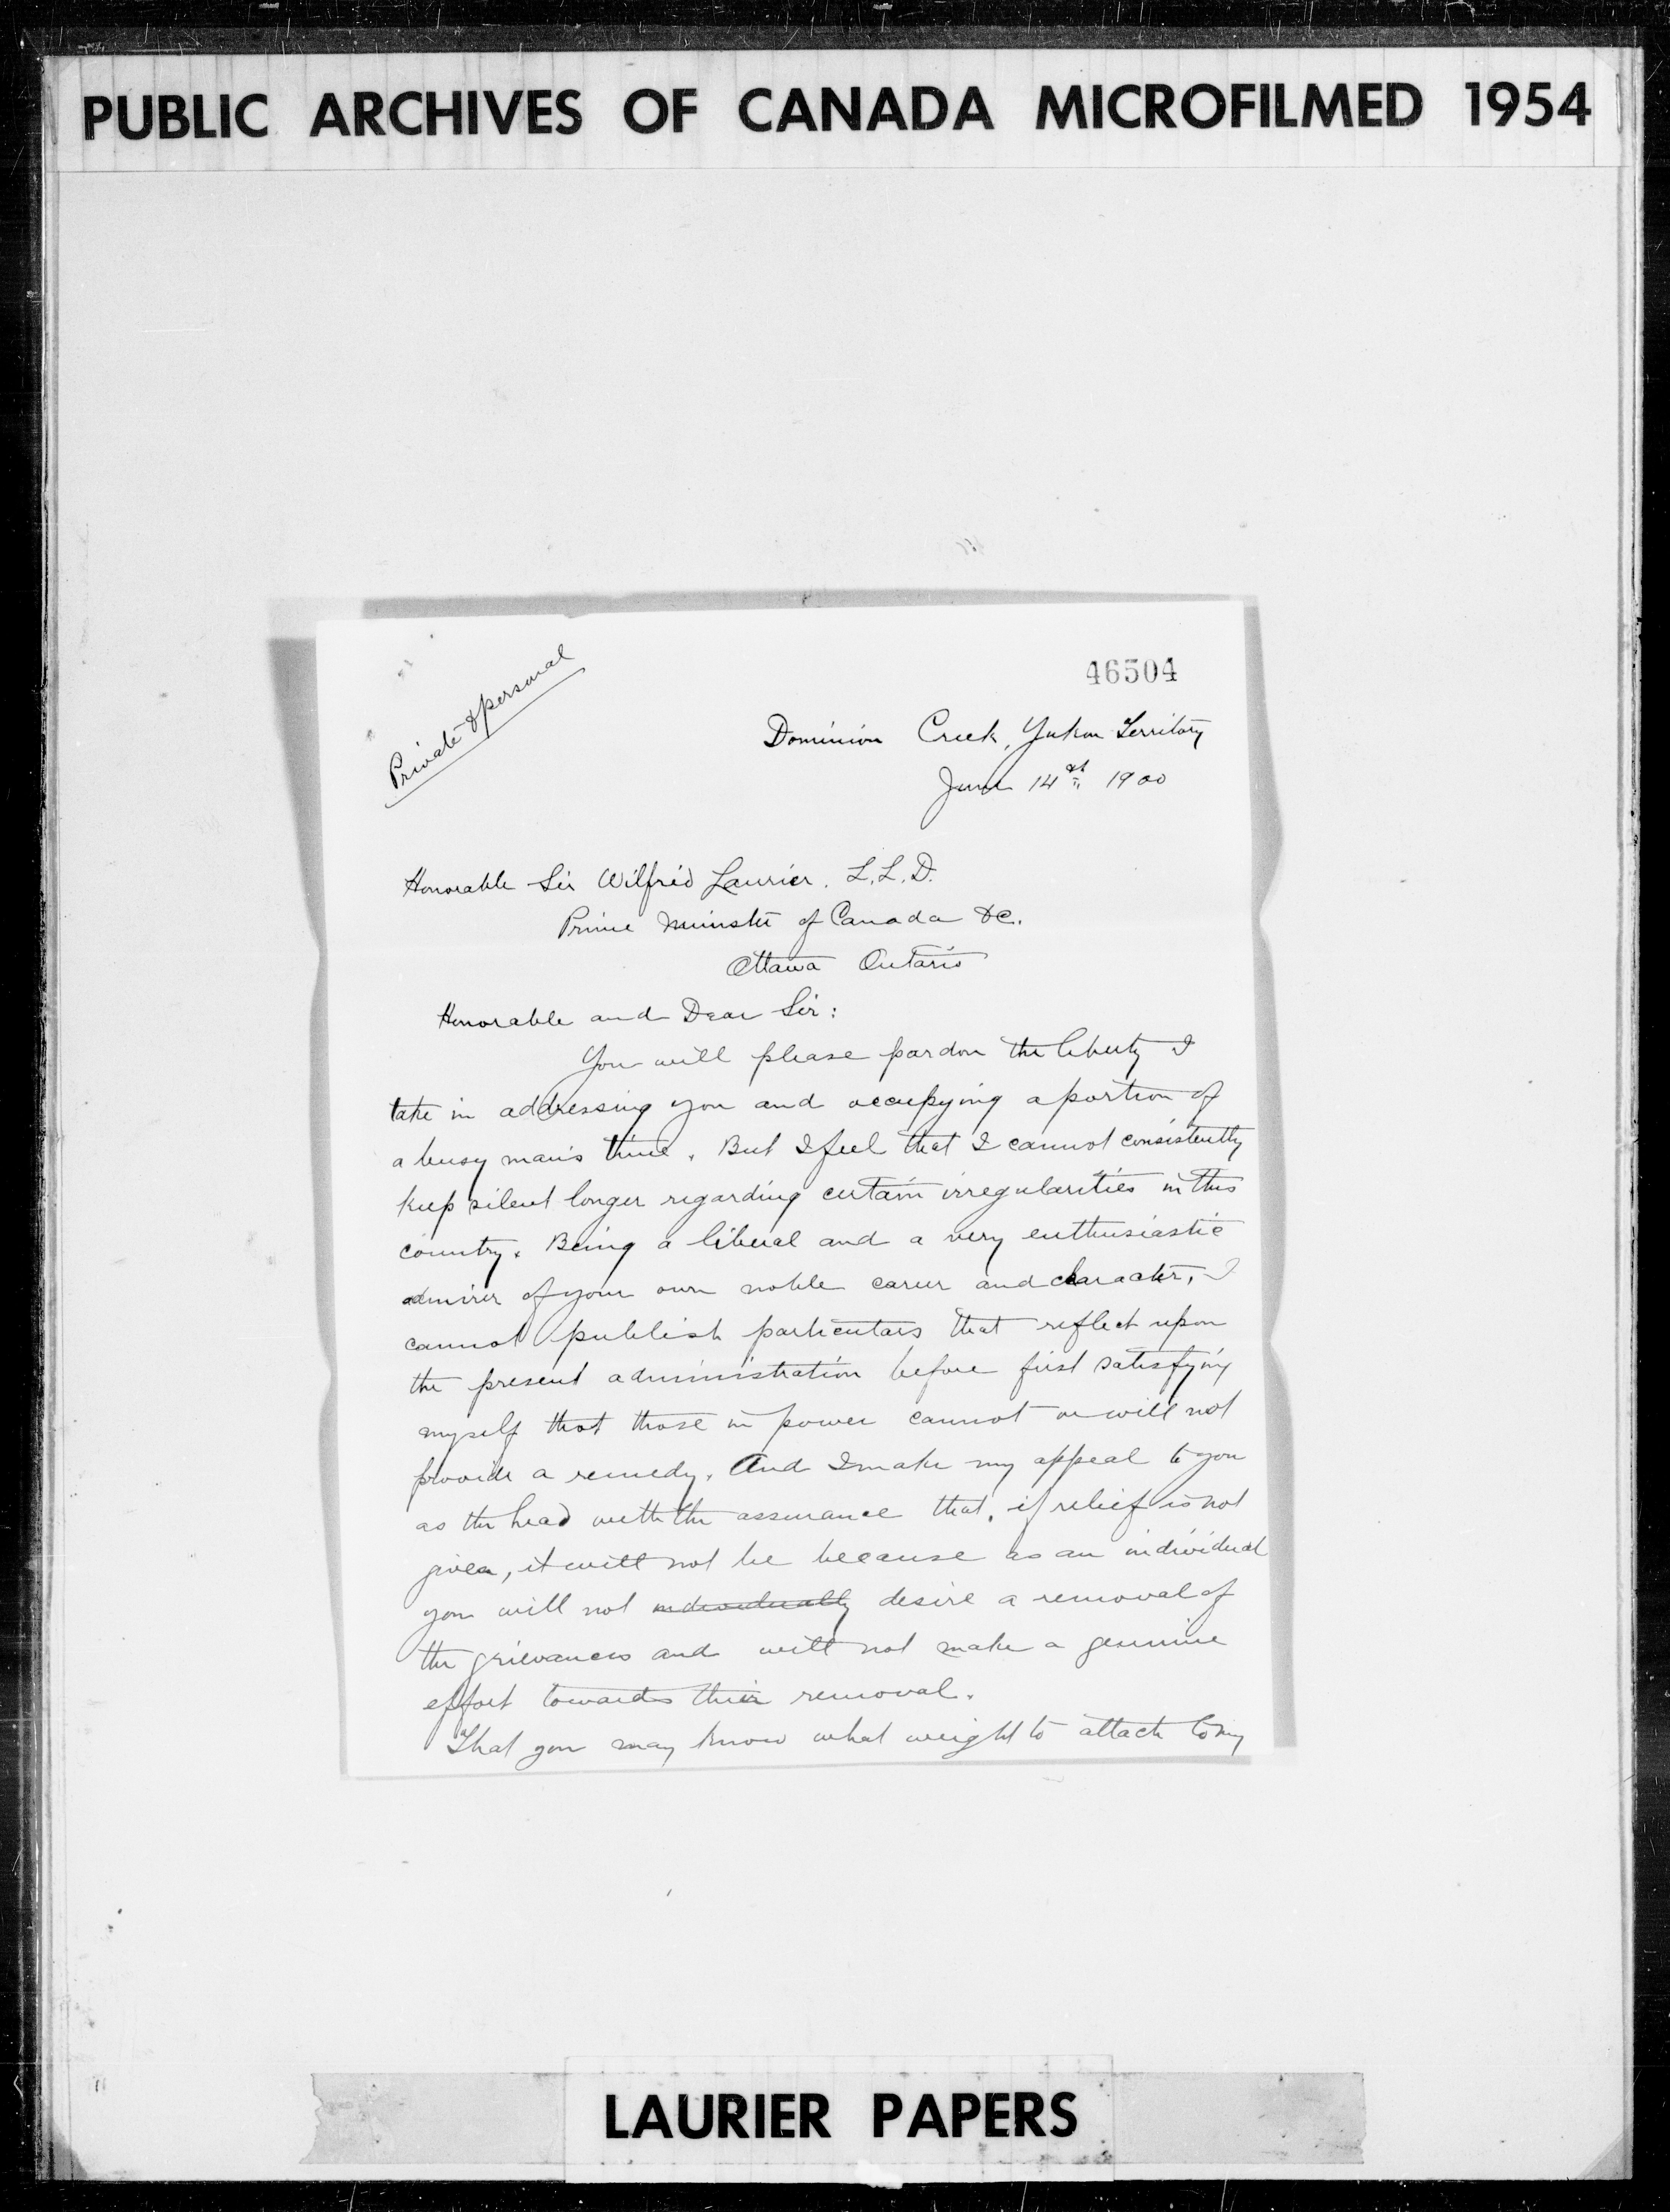 PUBLIC ARCHIVES OF CANADA MICROFILMED 1954
46504
Private & personal
Dominion Creek, Yukon Territory
June 14st 1900
Honorable Sir Wilfrid Laurier. L.L.D.
Prime Minister of Canada &c.
Ottawa Ontario
Honorable and Dear Sir:
You will please pardon the liberty I
take in addressing you and occupying a portion of
a busy man's time. But I feel that I cannot consistently
keep silent longer regarding certain irregularities in this
country. Being a liberal and a very enthusiastic
admirer of your own noble career and character, I
cannot publish particulars that reflect upon
the present administration before first satisfying
myself that those in power cannot or will not
provide a remedy. And I make my appeal to you
as the head with the assurance that, if relief is not
given, it will not be because as an individual
you will not individually desire a removal of
the grievances and will not make a genuine
effort towards their removal.
That you may know what weight to attach to my
LAURIER PAPERS